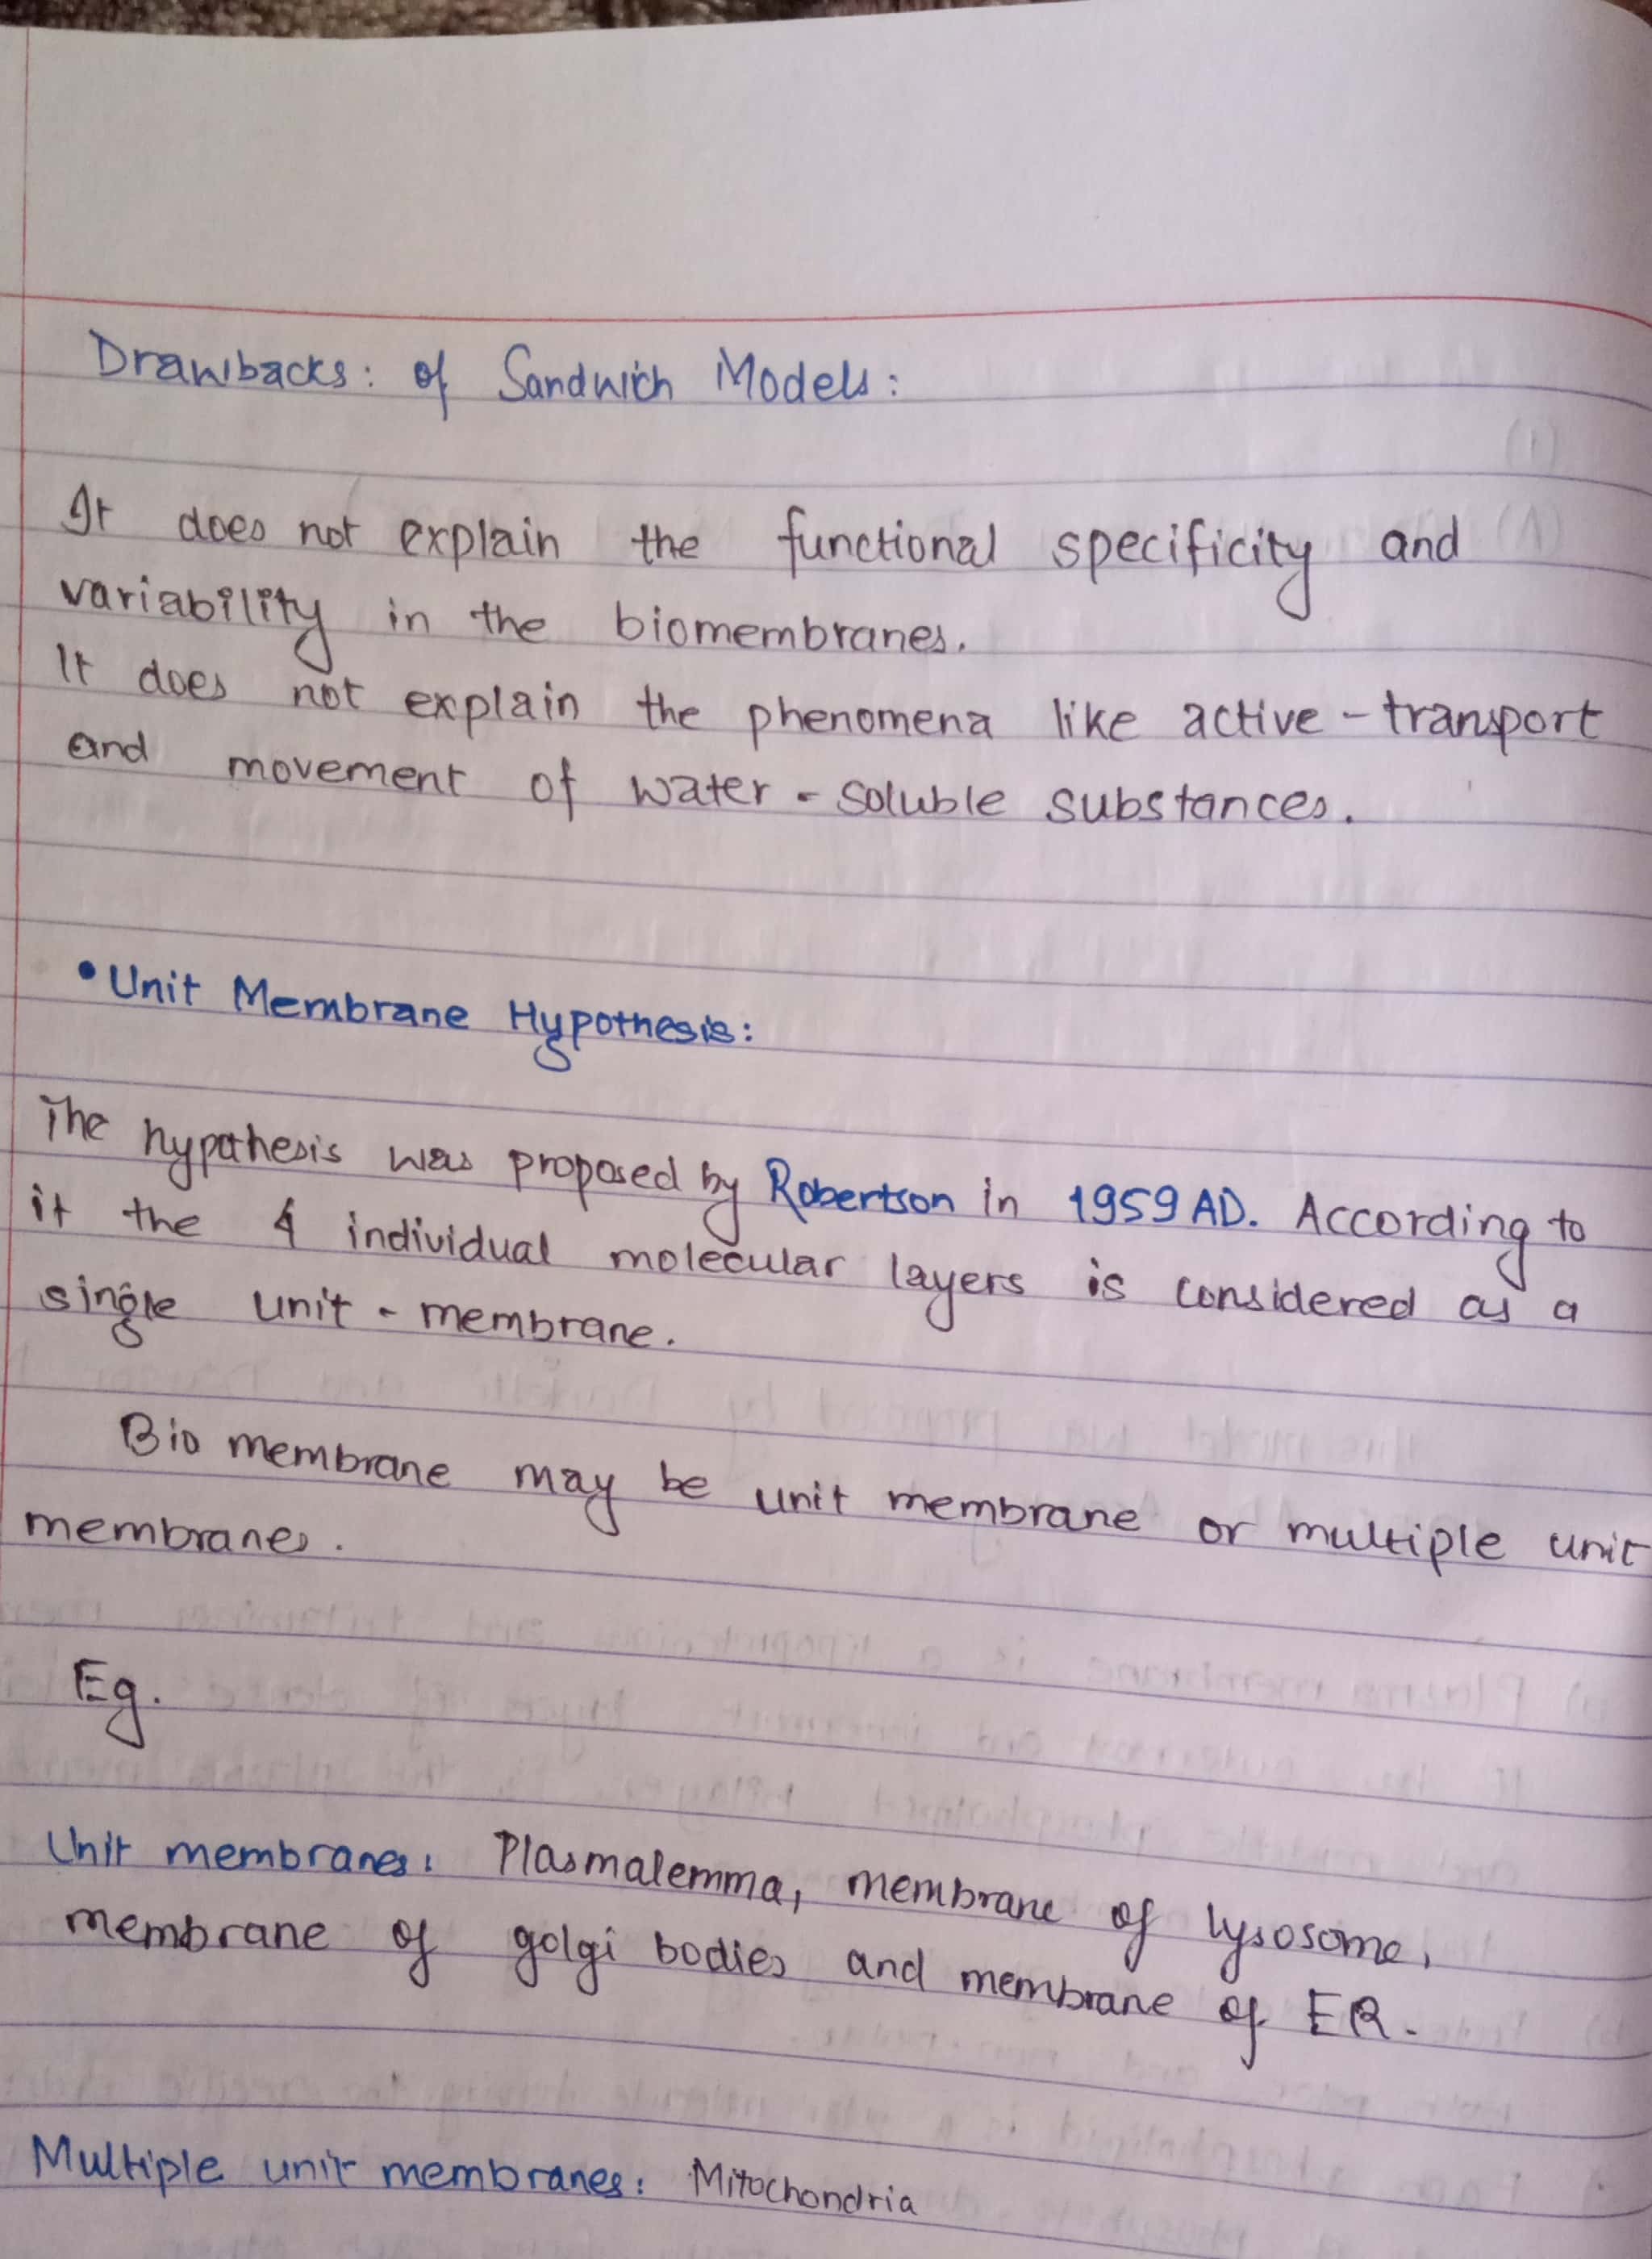 Drawbacks: of Sandwich Models:
It does not explain the functional specificity and
variability in the biomembranes.
It does not explain the phenomena like active-transport
and movement of water-soluble substances.
• Unit Membrane Hypothesis:
The hypothesis was proposed by Robertson in 1959 AD. According to
it the 4 individual molecular layers is considered as a
single unit-membrane.
Bio membrane may be unit membrane or multiple unit
membranes.
Eg.
Unit membranes: Plasmalemma, membrane of lysosome,
membrane of golgi bodies and membrane of ER.
Multiple unit membranes: Mitochondria